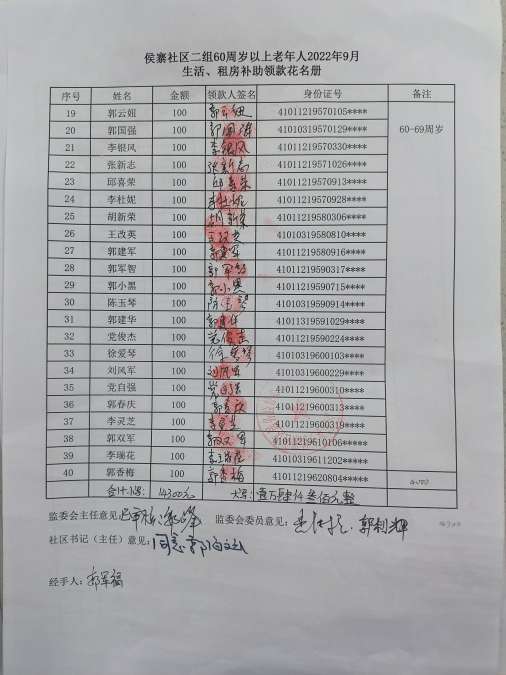 侯寨社区二组60周岁以上老年人2022年9月
生活、租房补助领款花名册
序号 姓名 金额 领款人签名 身份证号 备注
19 郭云妞 100 郭云妞 41011219570105****
20 郭国强 100 郭国强 41010319570129**** 60-69周岁
21 李银凤 100 李银凤 41011219570330****
22 张新志 100 张新志 41011219571026****
23 邱喜荣 100 邱喜荣 41011219570913****
24 李杜妮 100 李杜妮 41011219570928****
25 胡新荣 100 胡新荣 41011219580306****
26 王改英 100 王改英 41010319580810****
27 郭建军 100 郭建军 41011219580916****
28 郭军智 100 郭军智 41011219590317****
29 郭小黑 100 郭小黑 41011219590715****
30 陈玉琴 100 陈玉琴 41010319590914****
31 郭建华 100 郭建华 41011319591029****
32 党俊杰 100 党俊杰 41011219591204****
33 徐爱琴 100 徐爱琴 41010319600103****
34 刘凤军 100 刘凤军 41010319600229****
35 党自强 100 41011219600310****
36 郭春庆 100 郭春庆 41011219600313****
37 李灵芝 100 41011219600319****
38 郭双军 100 郭双军 41011219610106****
39 李瑞花 100 41010319611202****
40 郭香梅 100 郭香梅 41011219620804****
合计小写: 14300元 大写: 壹万肆仟叁佰元整
监委会主任意见: 监委会委员意见: 郭利辉
社区书记（主任）意见: 同意
经手人: 郭军福